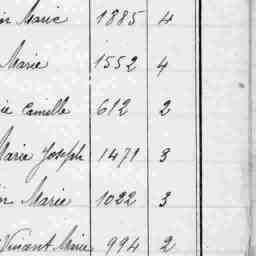 Marie 1885 4
Marie 1552 4
Camille 612 2
Marie Joseph 1471 3
Marie 1022 3
Vincent Marie 994 2